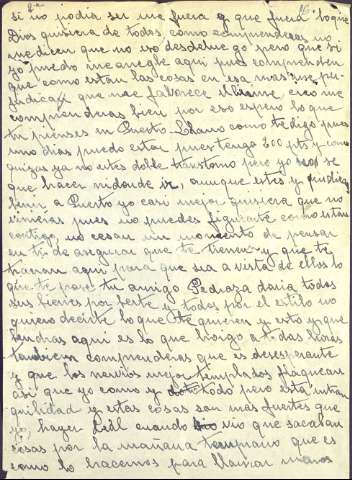 2ª
16
si no podia ser me fuera y que fuera lo que
Dios quisiera de todos, como comprenderas no
me dicen que no eso desde luego pero que si
yo puedo me arregle aqui pues comprenden
que como estan las cosas en esa mas me per
judica que me faborece llebarme creo me
comprenderas bien por eso espero lo que
tu pienses en Puerto como te digo pues
unos dias puedo estar pues tengo 200 pts y como
quizas ya no estes doble trastorno pero yo no se
que hacer ni donde ir, aunque estes y pudieras
benir a Puerto yo casi mejor quisiera que no
vinieras pues no puedes figurarte como estan
contigo, no cesan un momento de pensar
en ti de asegurar que te tienen y que te
traeran aqui para que sea a vista de ellos lo
que te pase tu amigo Pedraza daria todos
sus bienes por berte y todos por el estilo no
quiero decirte lo que te quieren y esto y que
bendras aqui es lo que oigo a todas horas
tambien comprenderas que es desesperante
y que los nervios mejor templados flaquean
asi que yo como y todo pero esta intran
quilidad y estas cosas son mas fuertes que
yo, hayer cuando vio que sacaban
cosas por la mañana temprano que es
como lo hacemos para llamar menos